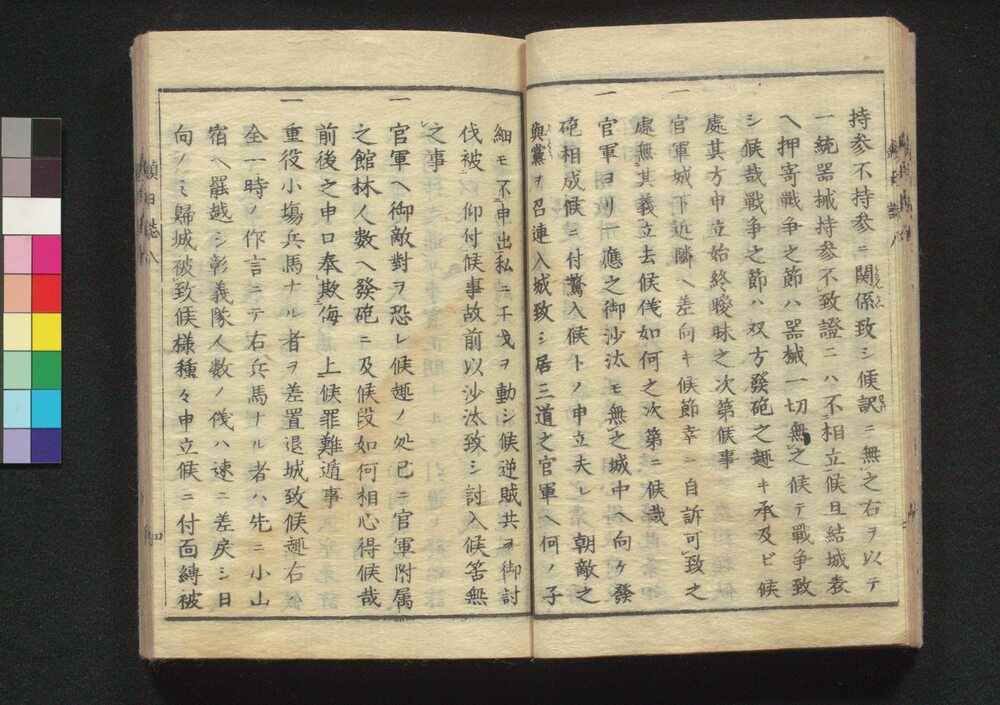 持参不持参ニ関係致シ候訳ニ無之右ヲ以テ
一統器械持参不致證ニハ不相立候且結城表
ヘ押寄戰争之節ハ器械一切無之候テ戰争致
シ候哉戰争之節ハ双方發砲之趣キ承及ビ候
處其方申立始終曖昧之次第候事
一
官軍城下近隣ヘ差向キ候節幸ニ自訴可致之
處無其義立去候儀如何之次第ニ候哉
一
官軍ヨリ一應之御沙汰モ無之城中ヘ向ケ發
砲相成候ニ付驚入候トノ申立夫レ朝敵之
與黨ヲ召連入城致シ居三道之官軍ヘ何ノ子
細モ不申出私ニ干戈ヲ動シ候逆賊共ヲ御討
伐被仰付候事故前以沙汰致シ討入候筈無
之事
一
官軍ヘ御敵對ヲ恐レ候趣ノ処已ニ官軍附属
之館林人数ヘ發砲ニ及候段如何相心得候哉
前後之申口奉欺侮上候罪難遁事
一
重役小塲兵馬ナル者ヲ差置退城致候趣右
全一時ノ作言ニテ右兵馬ナル者ハ先ニ小山
宿ヘ罷越シ彰義隊人数ノ儀ハ速ニ差戻シ日
向ノミ歸城被致候様種々申立候ニ付面縛被